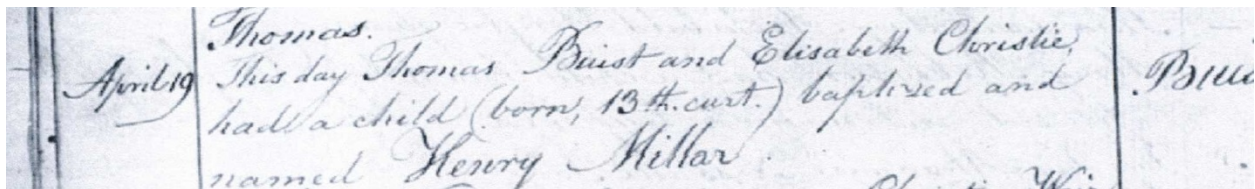 Thomas.
April 19 This day Thomas Buist and Elisabeth Christie,
had a child (born, 13th. curt.) baptized and
named Henry Millar
Christie